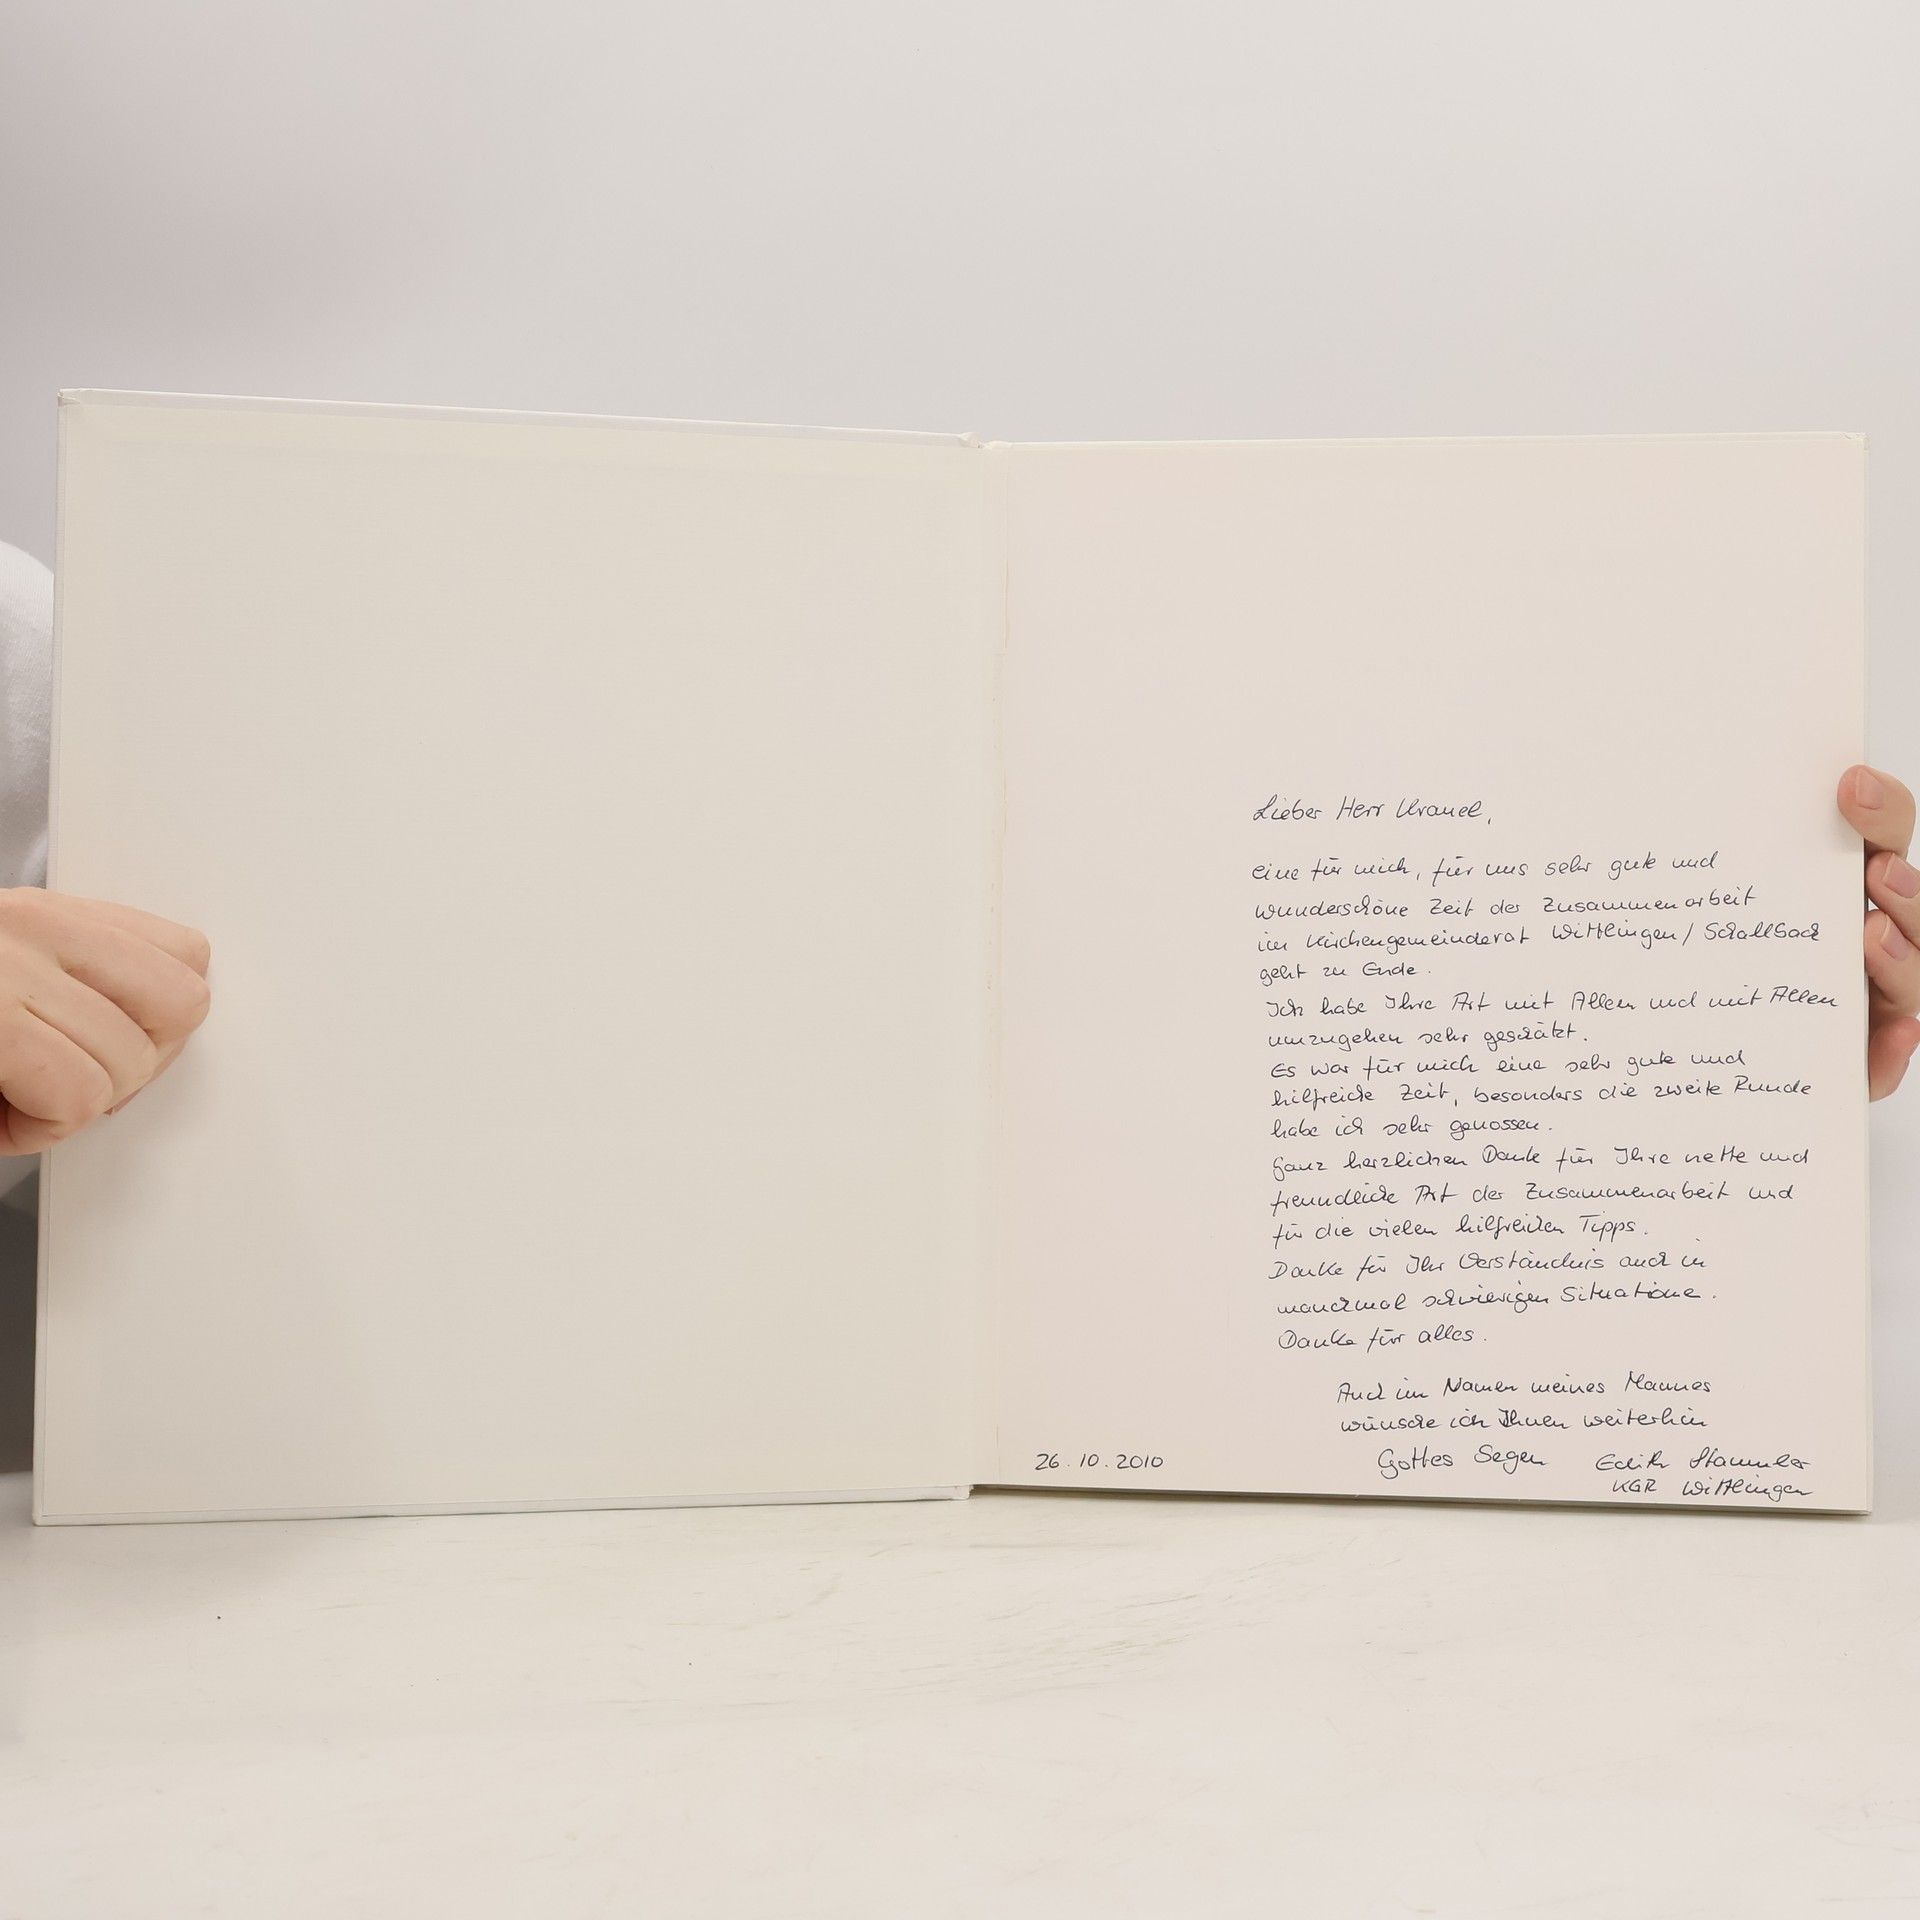 Lieber Herr Kranel,
eine für mich, für uns sehr gute und
wunderschöne Zeit der Zusammenarbeit
im Kirchengemeinderat Wittlingen/Schallbach
geht zu Ende.
Ich habe Ihre Art mit Allem und mit Allen
umzugehen sehr geschätzt.
Es war für mich eine sehr gute und
hilfreiche Zeit, besonders die zweite Runde
habe ich sehr genossen.
Ganz herzlichen Dank für Ihre nette und
freundliche Art der Zusammenarbeit und
für die vielen hilfreichen Tipps.
Danke für Ihr Verständnis auch in
manchmal schwierigen Situationen.
Danke für alles.
Auch im Namen meines Mannes
wünsche ich Ihnen weiterhin
Gottes Segen Edith Stammler
KGR Wittlingen
26.10.2010